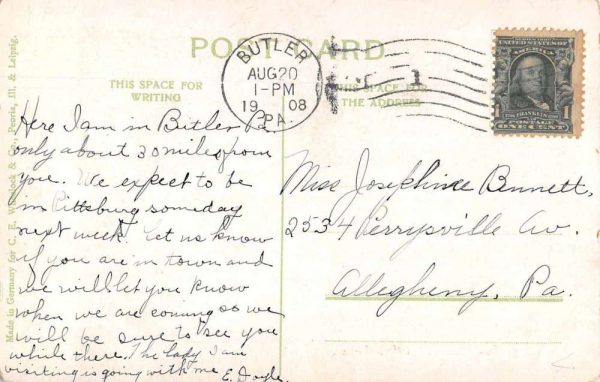 POST CARD
THIS SPACE FOR
WRITING
THIS SPACE FOR
THE ADDRESS
BUTLER
AUG 20
1-PM
1908
PA.
1
UNITED STATES OF
AMERICA
FRANKLIN
POSTAGE
ONE CENT
1
Here I am in Butler Pa.
only about 30 miles from
you. We expect to be
in Pittsburg someday
next week. Let us know
if you are in town and
we will let you know
when we are coming so we
will be sure to see you
while there. The lady I am
visiting is going with me E. Doyle
Miss Josephine Bennett,
2534 Perrysville Av.
Allegheny, Pa.
Made in Germany for C. E. & Co., Peoria, Ill. & Leipzig.